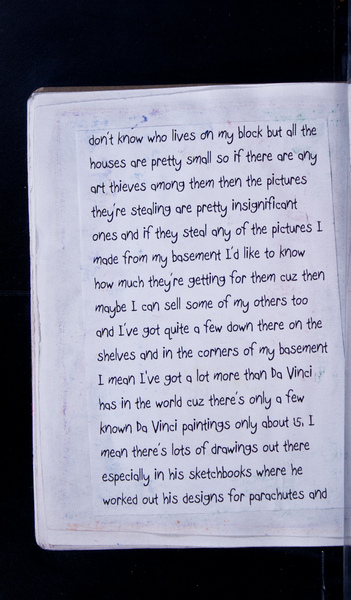 don't know who lives on my block but all the
houses are pretty small so if there are any
art thieves among them then the pictures
they're stealing are pretty insignificant
ones and if they steal any of the pictures I
made from my basement I'd like to know
how much they're getting for them cuz then
maybe I can sell some of my others too
and I've got quite a few down there on the
shelves and in the corners of my basement
I mean I've got a lot more than Da Vinci
has in the world cuz there's only a few
known Da Vinci paintings only about 15, I
mean there's lots of drawings out there
especially in his sketchbooks where he
worked out his designs for parachutes and